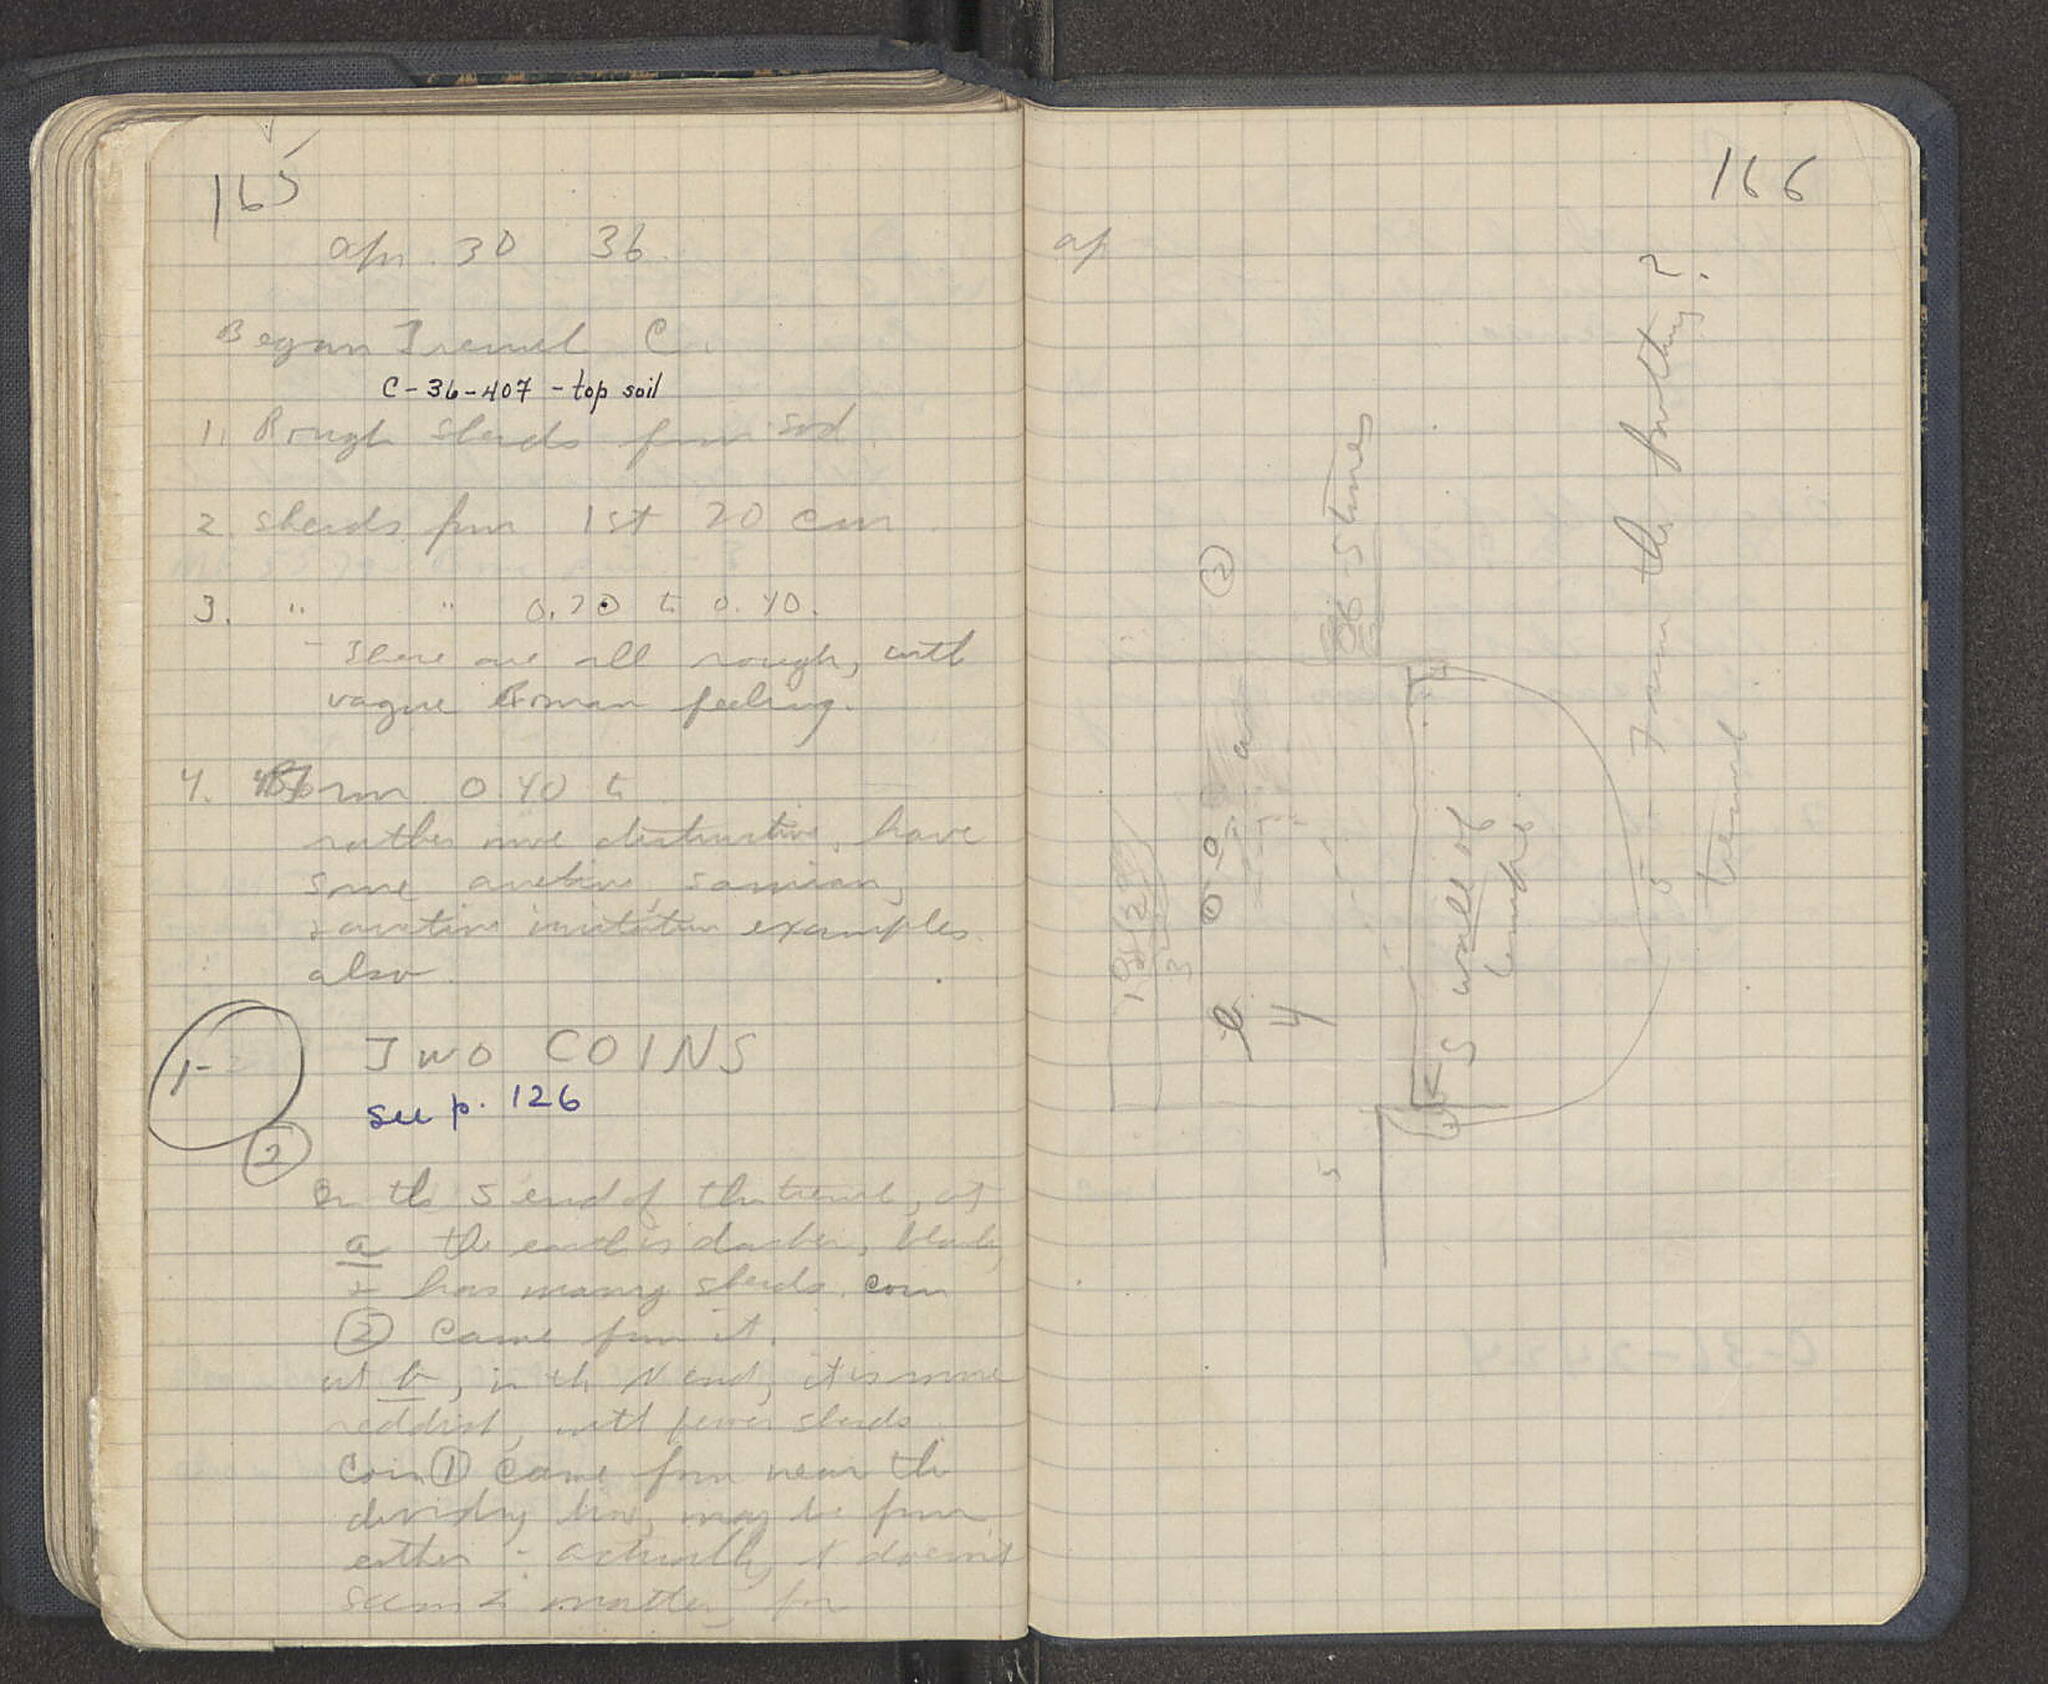 165
Apr. 30 36.
Began Trench C.
C-36-407 - top soil
1. Rough sherds from sod.
2. sherds from 1st 20 cm.
3. " " 0.20 to 0.40.
- These are all rough, with
vague Roman feeling.
4. From 0.40 to
rather more distinctive, have
some arretine, samian,
& arretine imitation examples
also.
1-2
TWO COINS
see p. 126
2
On the S end of the trench, at
a the earth is darker, black,
& has many sherds. Coin
2 came from it.
at b, in the N end, it is more
reddish, with fewer sherds.
Coin 1 came from near the
dividing line, may be from
either - actually it doesn't
seem to matter, for
166
ap
2
stones
a
1
b
4
S wall of
temple
5
7 the pothing?
trench